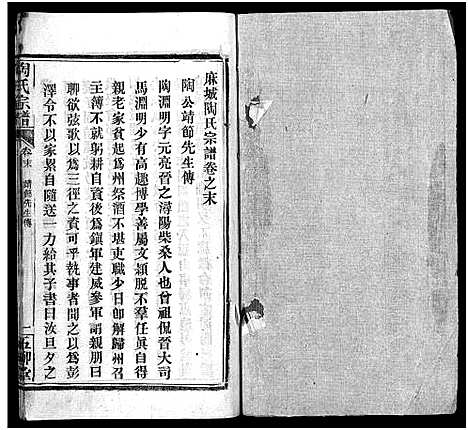 麻城陶氏宗譜卷之末
陶公靖節先生傳
陶淵明字元亮晉之潯陽柴桑人也曾祖侃晉大司
馬淵明少有高趣博學善屬文潁脫不羣任眞自得
親老家貧起爲州祭酒不堪吏職少日卽解歸州召
主薄不就躬耕自資後爲鎭軍建威參軍謂親朋曰
聊欲弦歌以爲三徑之資可乎執事者聞之以爲彭
澤令不以家累自隨送一力給其子書曰汝旦夕之
陶氏宗譜
卷末
靖節先生傳
一
五柳堂